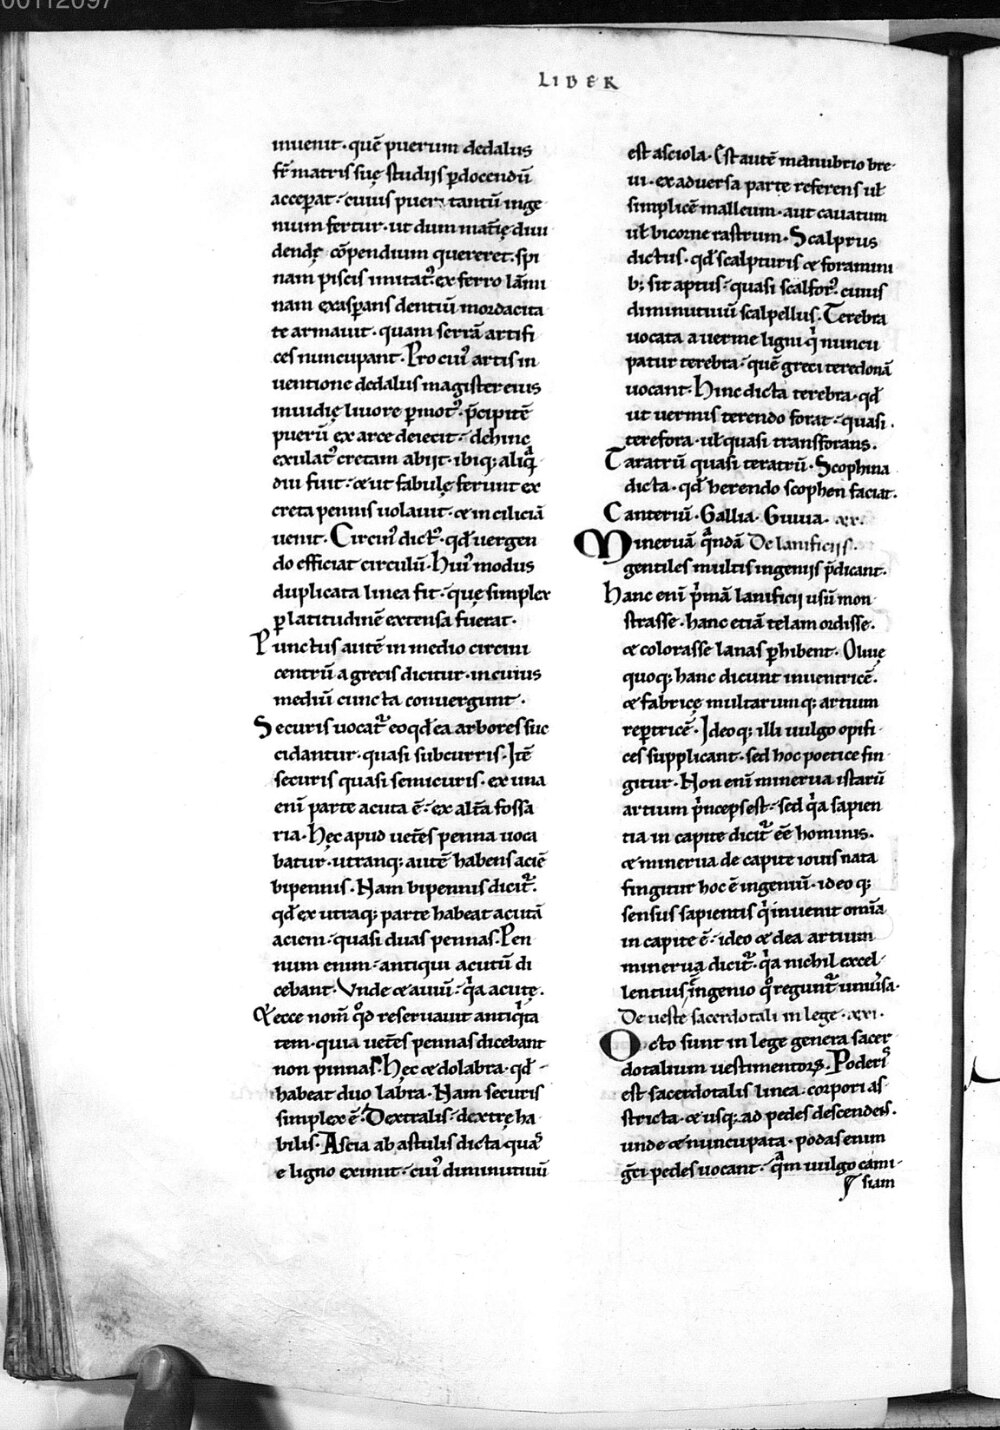 00112097
LIBER
inuenit · quē puerum dedalus
fr̄ matris suę studijs ꝑdocendū
acceperat · cuius pueri tantū inge
nium fertur · ut dum materię diui
dendę cōpendium quereret · spi
nam piscis imitatꝰ · ex ferro lāmi
nam exasperans dentiū mordacita
te armauit · quam serrā artifi
ces nuncupant · Pro cuiꝰ artis in
uentione dedalus magister eius
inuidię liuore ꝑmotꝰ · p̄cipitē
puerū ex arce deiecit · dehinc
exulatꝰ cretam abijt · ibiq; aliqͣ
diu fuit · & ut fabulę ferunt ex
creta pennis uolauit · & in ciliciā
uenit · Circinꝰ dictꝰ · qđ uergen
do efficiat circulū · Huiꝰ modus
duplicata linea fit · quę simplex
ꝑ latitudinē extensa fuerat ·
Punctus autē in medio circini
centrū a grecis dicitur · in cuius
mediū cuncta conuergunt ·
Securis uocat᷑ eo qđ ea arbores suc
cidantur · quasi subcurris · Itē
securis quasi semicuris · ex una
enī parte acuta ē · ex alt̄a fosso
ria · Hęc apud uet̄es penna uoca
batur · utranq; autē habens aciē
bipennis · Nam bipennis dicit᷑ ·
qđ ex utraq; parte habeat acutā
aciem · quasi duas pennas · Pen
num enim · antiqui acutū di
cebant · Vnde & auiū · qͥa acutę ·
& ecce nom̄ qͦd reseruauit antiqͥta
tem · quia uet̄es pennas dicebant
non pinnas · Hęc & dolabra · qđ
habeat duo labra · Nam securis
simplex ē · Dextralis · dextrę ha
bilis · Ascia ab astulis dicta quaˢ
e ligno eximit · cuiꝰ diminutiuū
est asciola · Est autē manubrio bre
ui · ex aduersa parte referens ul̄
simplicē malleum · aut cauatum
ul̄ bicorne rastrum · Scalprus
dictus · qđ scalpturis & forami
b; sit aptus · quasi scalforꝰ · cuius
diminutiuū scalpellus · Terebra
uocata a uerme ligni qͥ nuncu
patur terebra · quē greci teredonā
uocant · Hinc dicta terebra · qđ
ut uermis terendo forat · quasi
terefora · ul̄ quasi transforans ·
Taratrū quasi teratrū · Scophina
dicta · qđ herendo scophen faciat ·
Canteriū · Gallia · Guuia · xx ·
Mineruā qͣndā De lanificijs ·
gentiles multis ingenijs p̄dicant ·
Hanc enī pͥmā lanificij usū mon
strasse · hanc etiā telam ordisse ·
& colorasse lanas ꝑhibent · Oliuę
quoq; hanc dicunt inuentricē ·
& fabricę multarumq; artium
repertricē · Ideoq; illi uulgo opifi
ces supplicant · sed hoc poetice fin
gitur · Non enī minerua istarū
artium pͥnceps est · sed qͥa sapien
tia in capite dicit᷑ eē hominis ·
& minerua de capite iouis nata
fingitur hoc ē ingeniū · ideoq;
sensus sapientis qͥ inuenit om̄ia
in capite ē · ideo & dea artium
minerua dicit᷑ · qͥa nichil excel
lentius ingenio qͦ regunt᷑ uniūsa ·
De ueste sacerdotali in lege · xxi ·
Octo sunt in lege genera sacer
dotalium uestimentorꝝ · Poderiˢ
est sacerdotalis linea · corpori as
stricta · & usq; ad pedes descendens ·
unde & nuncupata · podas enim
g̃ci pedes uocant · qͣm uulgo cami
siam